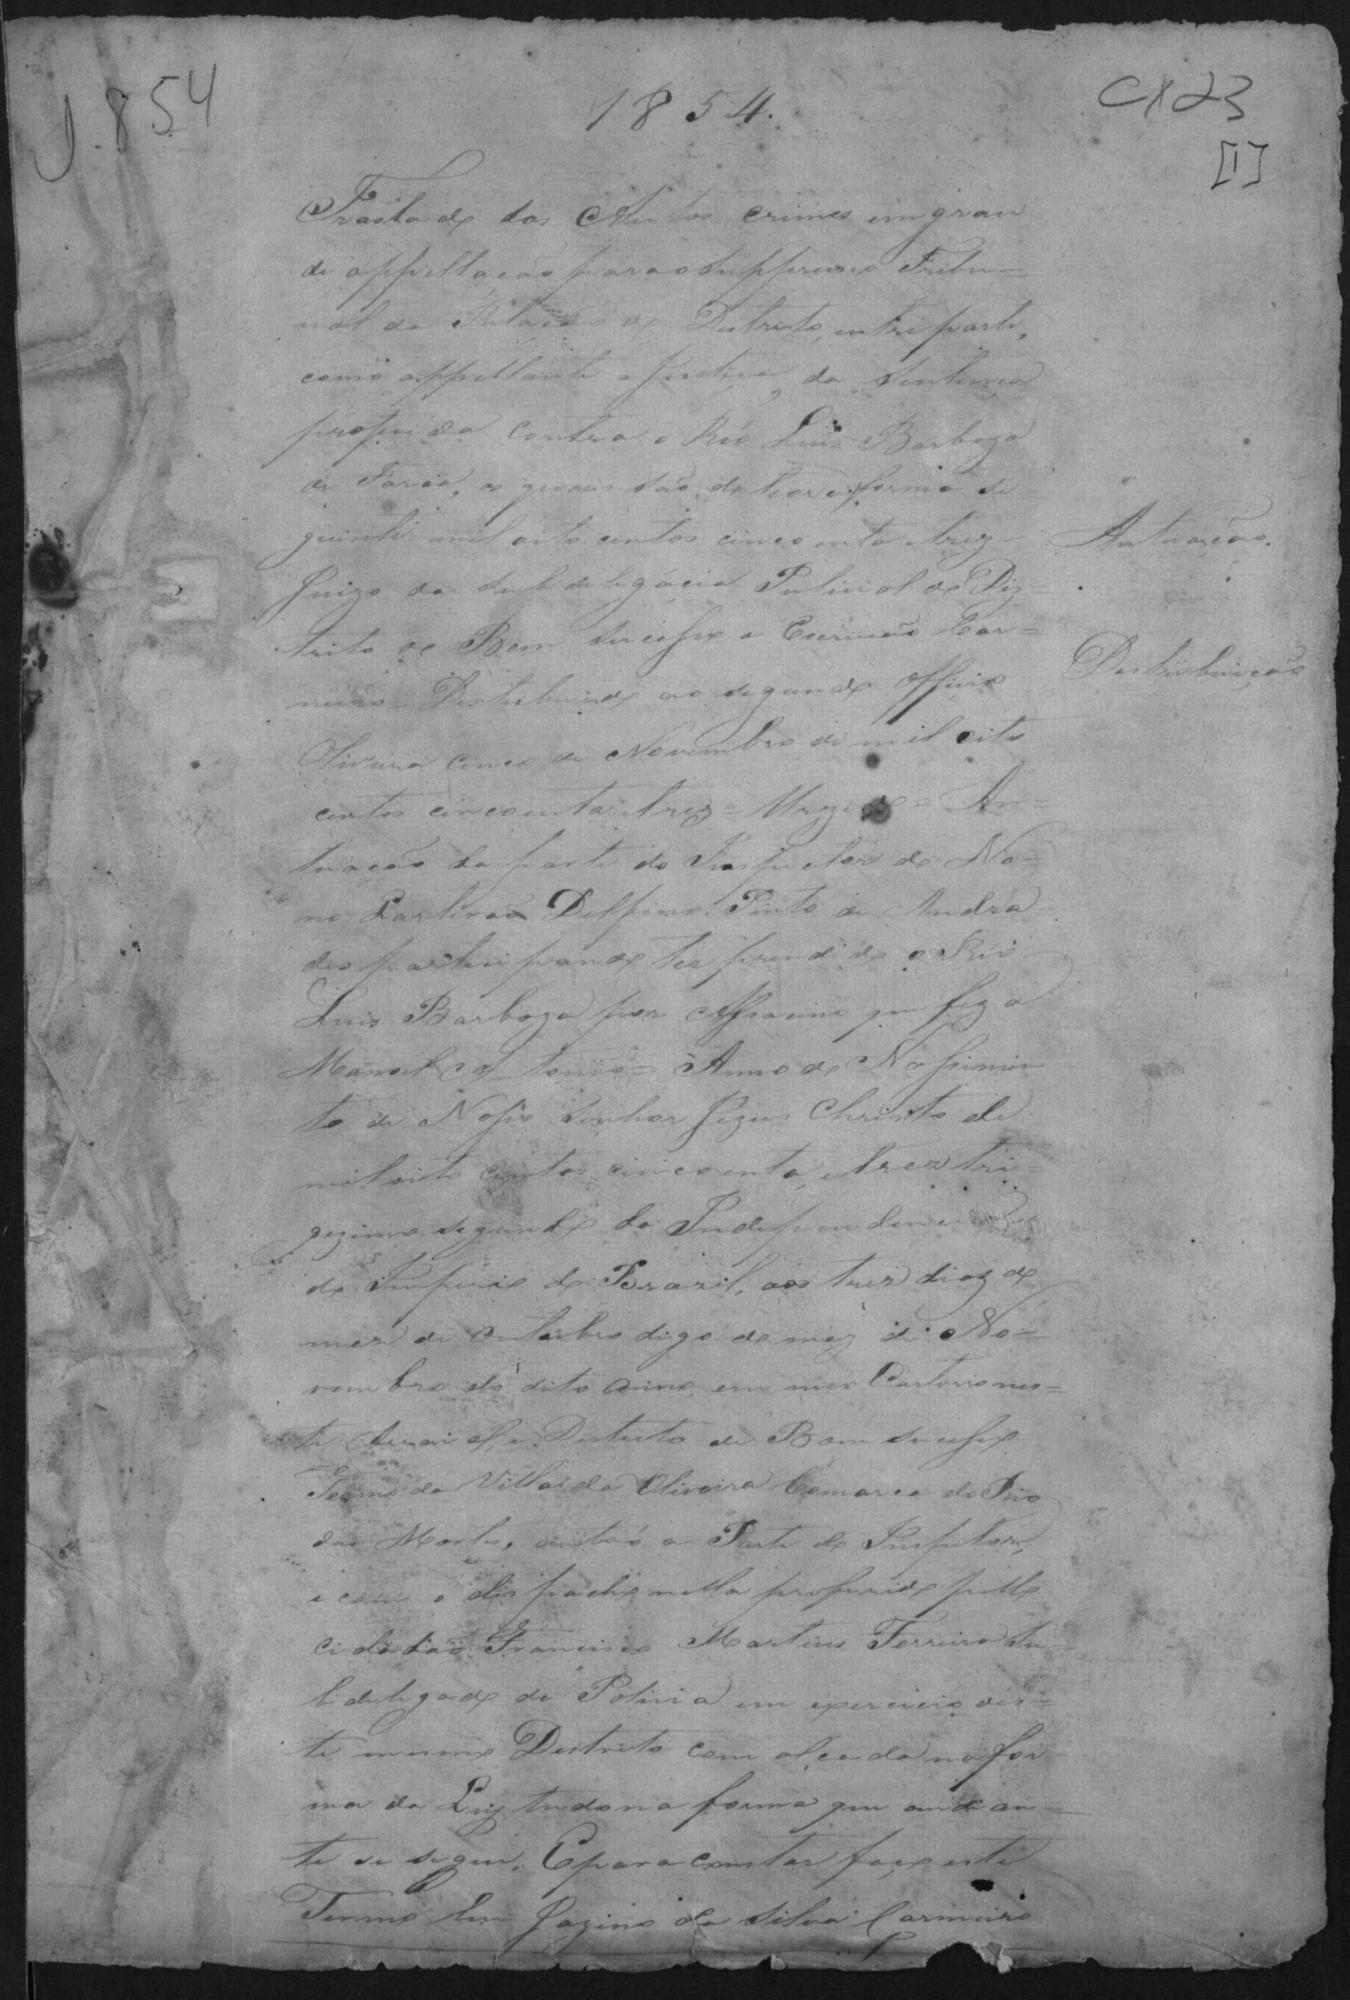 1854
1854.
CX23
[1]
Traslado dos Autos crimes em grau
de appellação para o Suppremo Tribu=
nal da Relação do Districto, entre parte,
como appellante a Justiça, da Sentença
proferida contra o Réo Luis Barboza
de Faria, os quaes são do theor e forma se-
guinte mil oito centos cincoenta e trez=
Autuação.
Juizo da Subdelegacia Policial do Diz-
trito de Bom Sucesso o Escrivão Car=
neiro= Destribuido ao segundo Officio
Destribuição
Oliveira cinco de Novembro de mil oito
centos cincoenta e trez= = Au=
tuação da parte do Inspector do No=
no Quarteirão Delfino Pinto de Andra=
de participando ter prendido o Réo
Luis Barboza por Assacinio que fez a
Manoel Antonio= Anno do Nascimen
to de Nosso Senhor Jezus Christo de
mil oito centos cincoenta, e trez tri=
gezimo segundo da Independencia
do Imperio do Brazil, aos trez dias do
mez de Outubro digo do mez de No=
vembro do dito anno, em meo Cartorio nes=
te Arraial, e Districto de Bom Sucesso
Termo da Villa da Oliveira Comarca do Rio
das Mortes, autuo a Parte do Inspetor,
e com o dispacho nella proferido pello
cidadão Francisco Martins Ferreira Su=
bdelegado de Policia em exercicio des=
te mesmo Destrito com alçada na for=
ma da Ley tudo na forma que ao dian=
te se segue. E para constar faço este
Termo Eu Jozino da Silva Carneiro